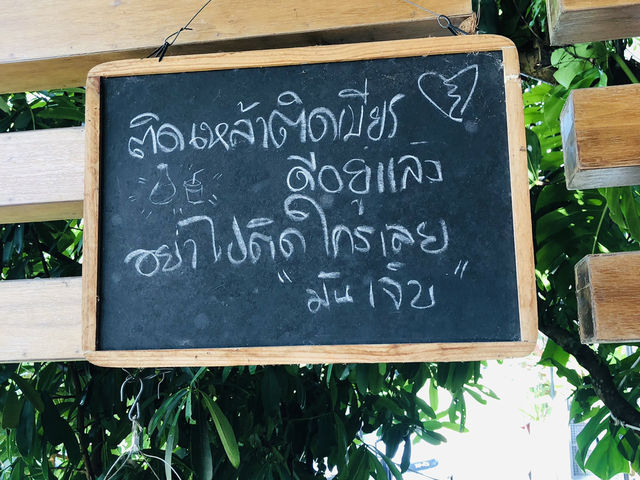 ติดเหล้าติดเบียร์
ดีอยู่แล้ว
อย่าไปติดใครเลย
"มันเจ็บ"